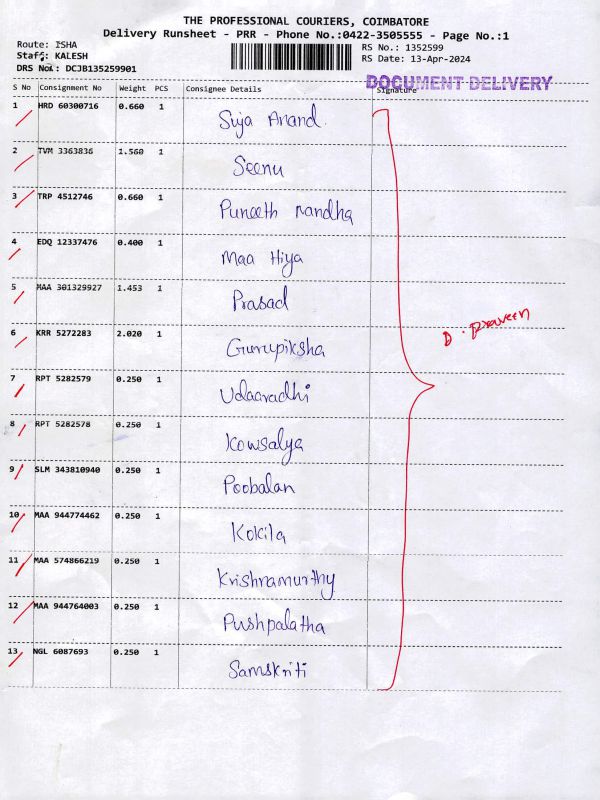 THE PROFESSIONAL COURIERS, COIMBATORE
Delivery Runsheet - PRR - Phone No.:0422-3505555 - Page No.:1
Route: ISHA
Staff: KALESH
DRS No.: DCJB135259901
RS No.: 1352599
RS Date: 13-Apr-2024
DOCUMENT DELIVERY
S No Consignment No Weight PCS Consignee Details Signature
1 HRD 60300716 0.660 1 Suja Anand
2 TVM 3363836 1.560 1 Seenu
3 TRP 4512746 0.660 1 Puneeth Nandha
4 EDQ 12337476 0.400 1 Maa Hiya
5 MAA 301329927 1.453 1 Prasad
D. Praveen
6 KRR 5272283 2.020 1 Gurupiksha
7 RPT 5282579 0.250 1 Udaaradhi
8 RPT 5282578 0.250 1 Kowsalya
9 SLM 343810940 0.250 1 Poobalan
10 MAA 944774462 0.250 1 Kokila
11 MAA 574866219 0.250 1 Krishramurthy
12 MAA 944764003 0.250 1 Pushpalatha
13 NGL 6087693 0.250 1 Samskriti